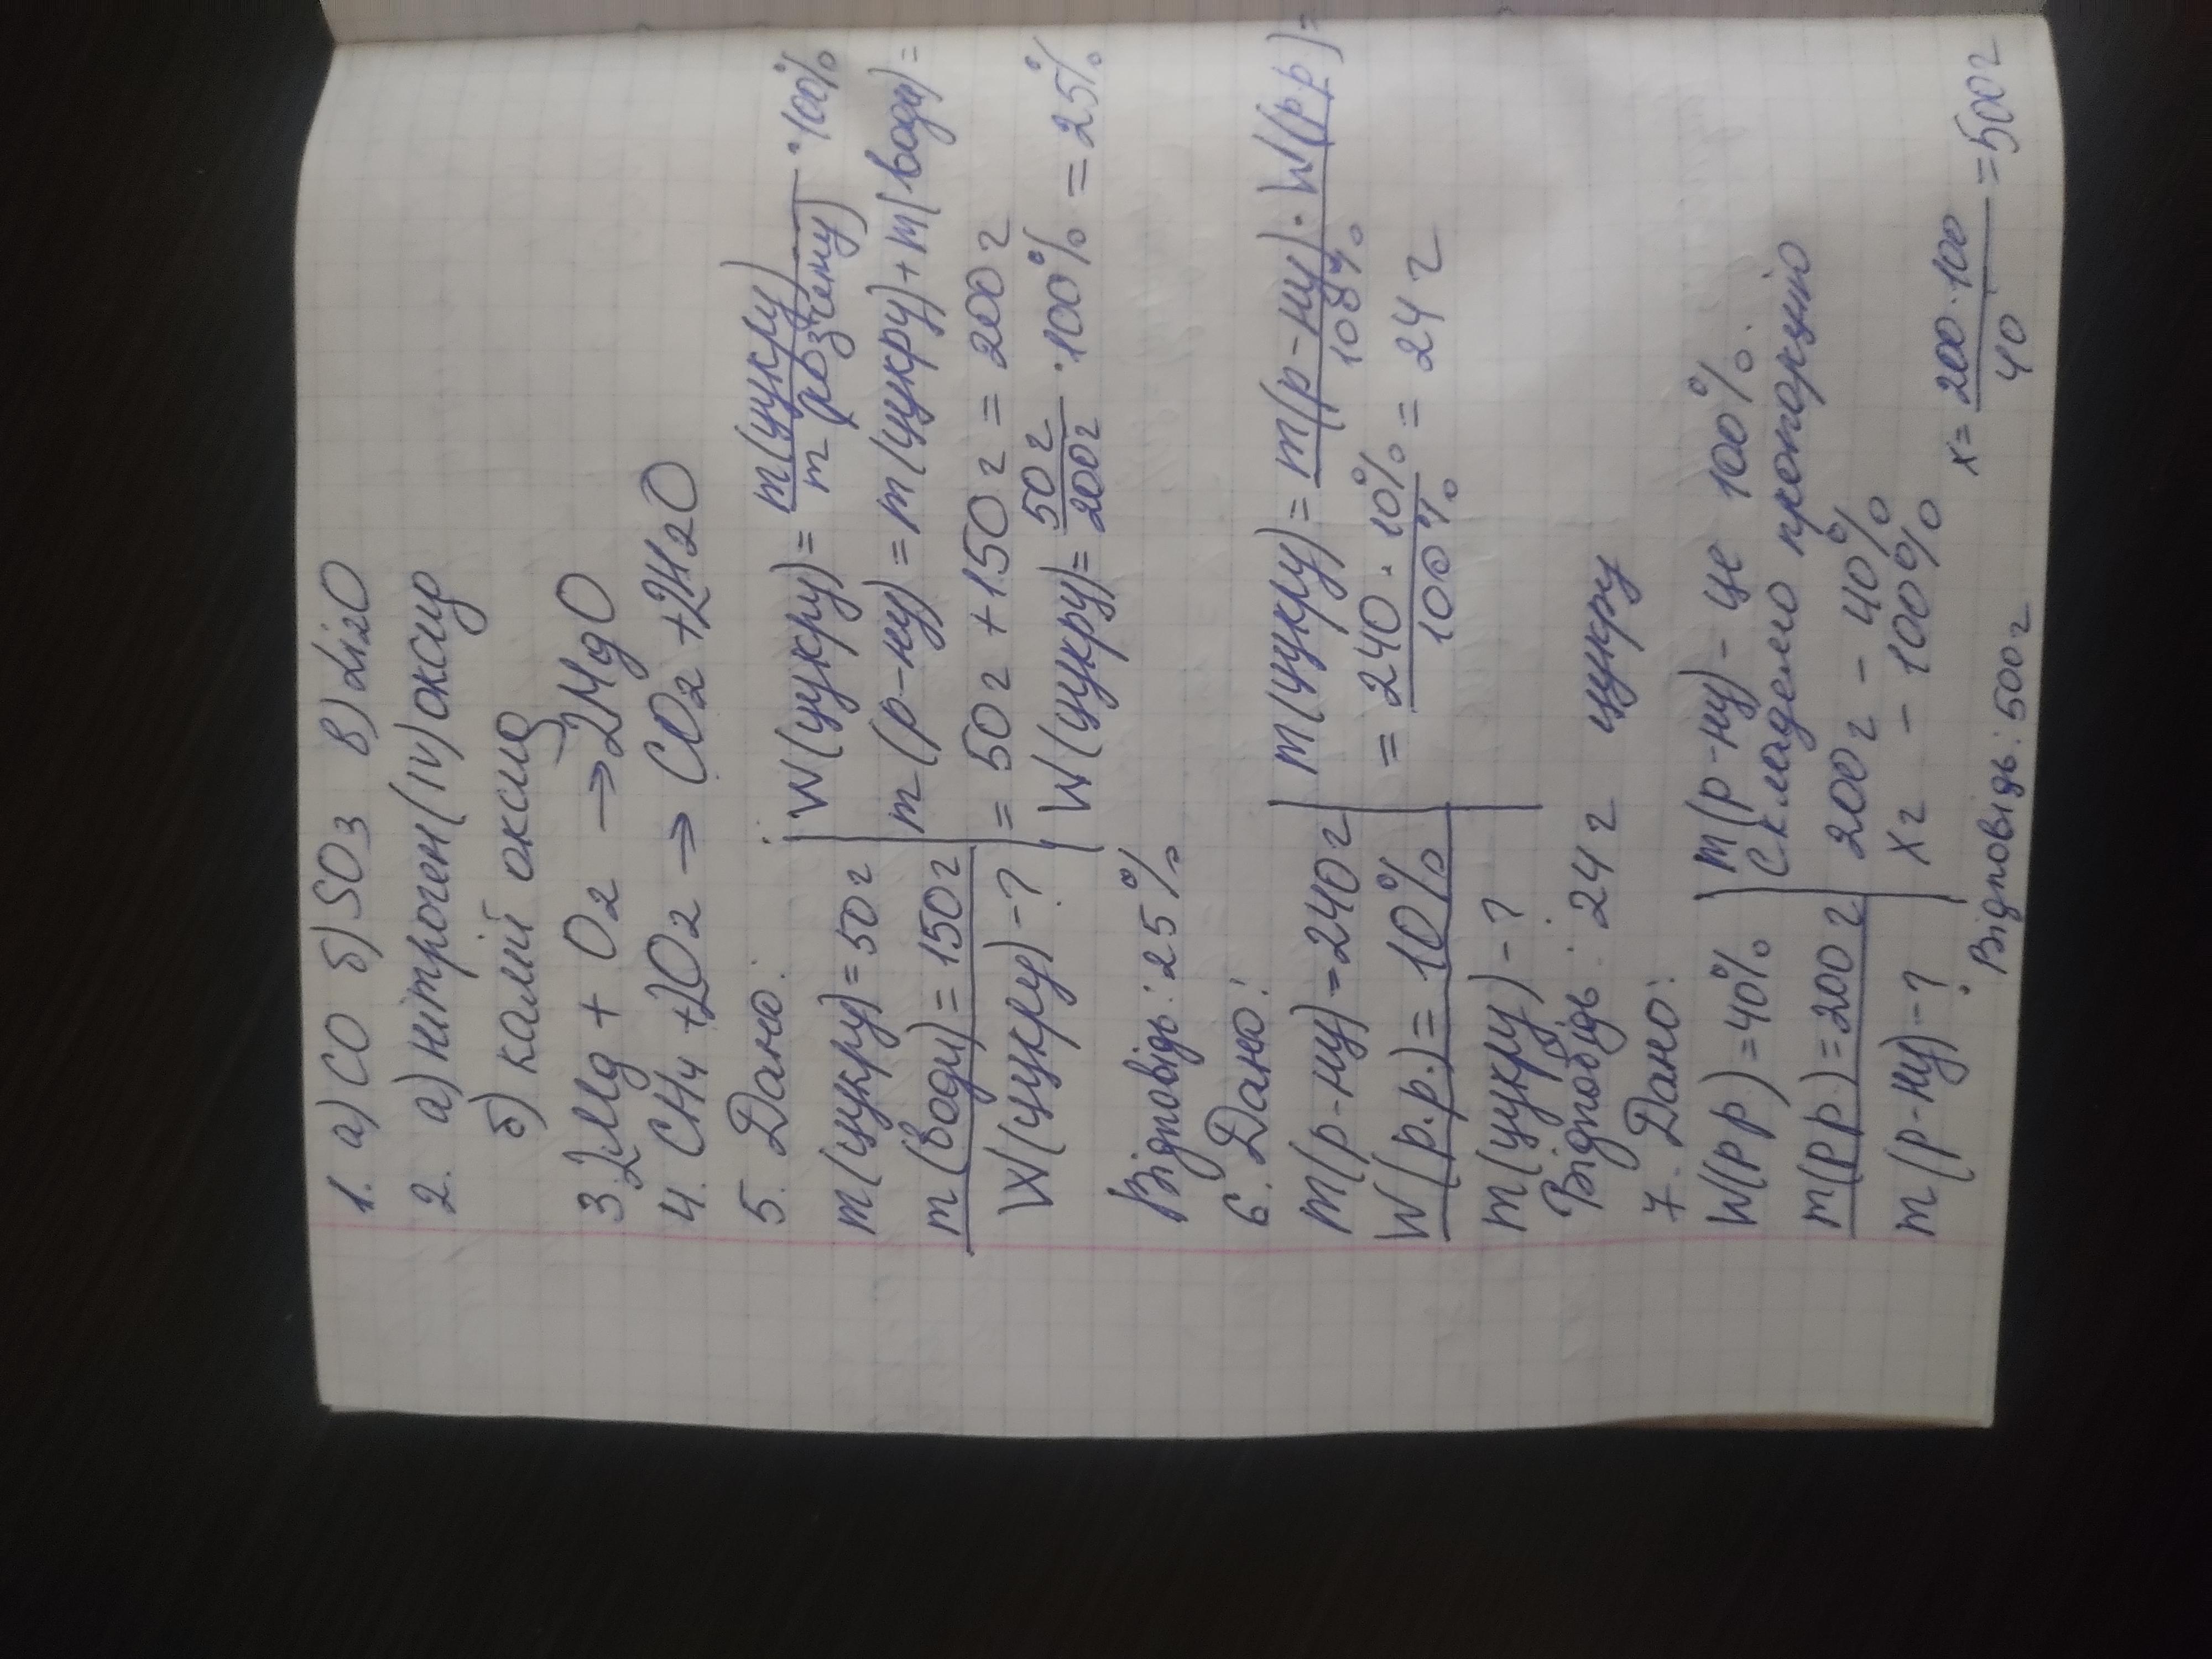 1. а) CO б) SO3 в) Li2O
2. а) нітроген (IV) оксид
б) калій оксид
3. 2Mg + O2 → 2MgO
4. CH4 + 2O2 → CO2 + 2H2O
5. Дано:
m(цукру) = 50 г
m(води) = 150 г
W(цукру) - ?
W(цукру) = m(цукру) / m розчину) · 100%
m(р-ну) = m(цукру) + m(води) =
= 50 г + 150 г = 200 г
W(цукру) = 50 г / 200 г · 100% = 25%
Відповідь: 25%
6. Дано:
m(р-ну) = 240 г
W(р.р.) = 10%
m(цукру) - ?
m(цукру) = m(р-ну) · W(рр) / 100% =
= 240 · 10% / 100% = 24 г
Відповідь: 24 г цукру
7. Дано:
W(рр) = 40%
m(рр.) = 200 г
m(р-ну) - ?
m(р-ну) - це 100%.
Складемо пропорцію
200 г - 40%
x г - 100%
x = 200 · 100 / 40 = 500 г
Відповідь: 500 г